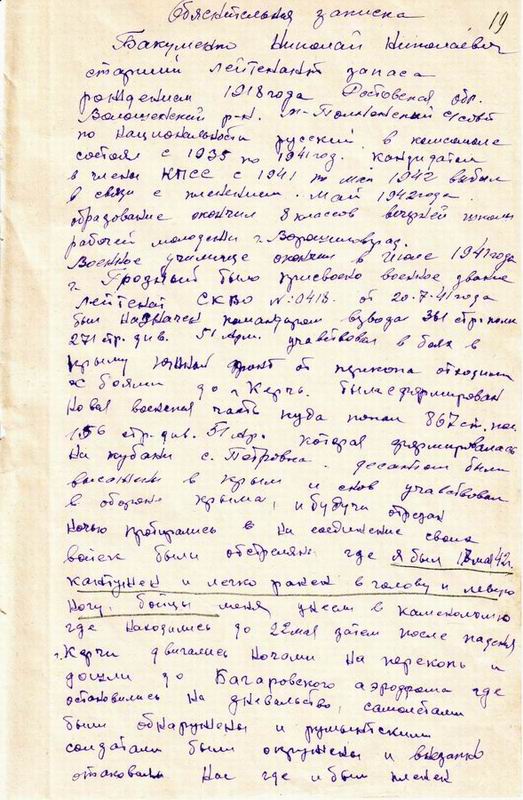 Объяснительная записка
19
Бакуменко Николай Николаевич
старший лейтенант запаса
рождением 1918 года Ростовская обл.
Волошенский р-н. с/совет
по национальности русский, в комсомоле
состоял с 1935 по 1941 год. кандидатом
в члены КПСС с 1941 по май 1942 выбыл
в связи с пленением. май 1942 года.
образование окончил 8 классов вечерней школы
рабочей молодежи г. Ворошиловград.
Военное училище окончил в июле 1941 года
г Грозный было присвоено военное звание
лейтенант СКВО №:0418. от 20.7.41 года
был назначен командиром взвода 361 стр. полк
271 стр. див. 51 Арм. учавствовал в боях в
крыму Южный фронт от перекопа отходили
с боями до г Керчь. была сформирован
новая военская часть куда попал 867 ст. пол.
156 стр. див. 51 Ар. которая формировалась
на кубани с. Петровка. десантом были
высажены в Крым и снов учавствовал
в обороне крыма, и будучи отрезан
ночью пробирались на соединение своих
войск были обстреляны где я был 17 мая 42 г.
контужен и легко ранен в голову и левую
ногу, бойцы меня унесли в каменоломню
где находились до 22 мая затем после падения
г. Керчи двигались ночами на перекопь и
дошли до Багаровского аэродрома где
остановились на дневальство, самолетами
были обнаружены и румынскими
солдатами были окружены и внезапно
отаковали нас где и был пленен